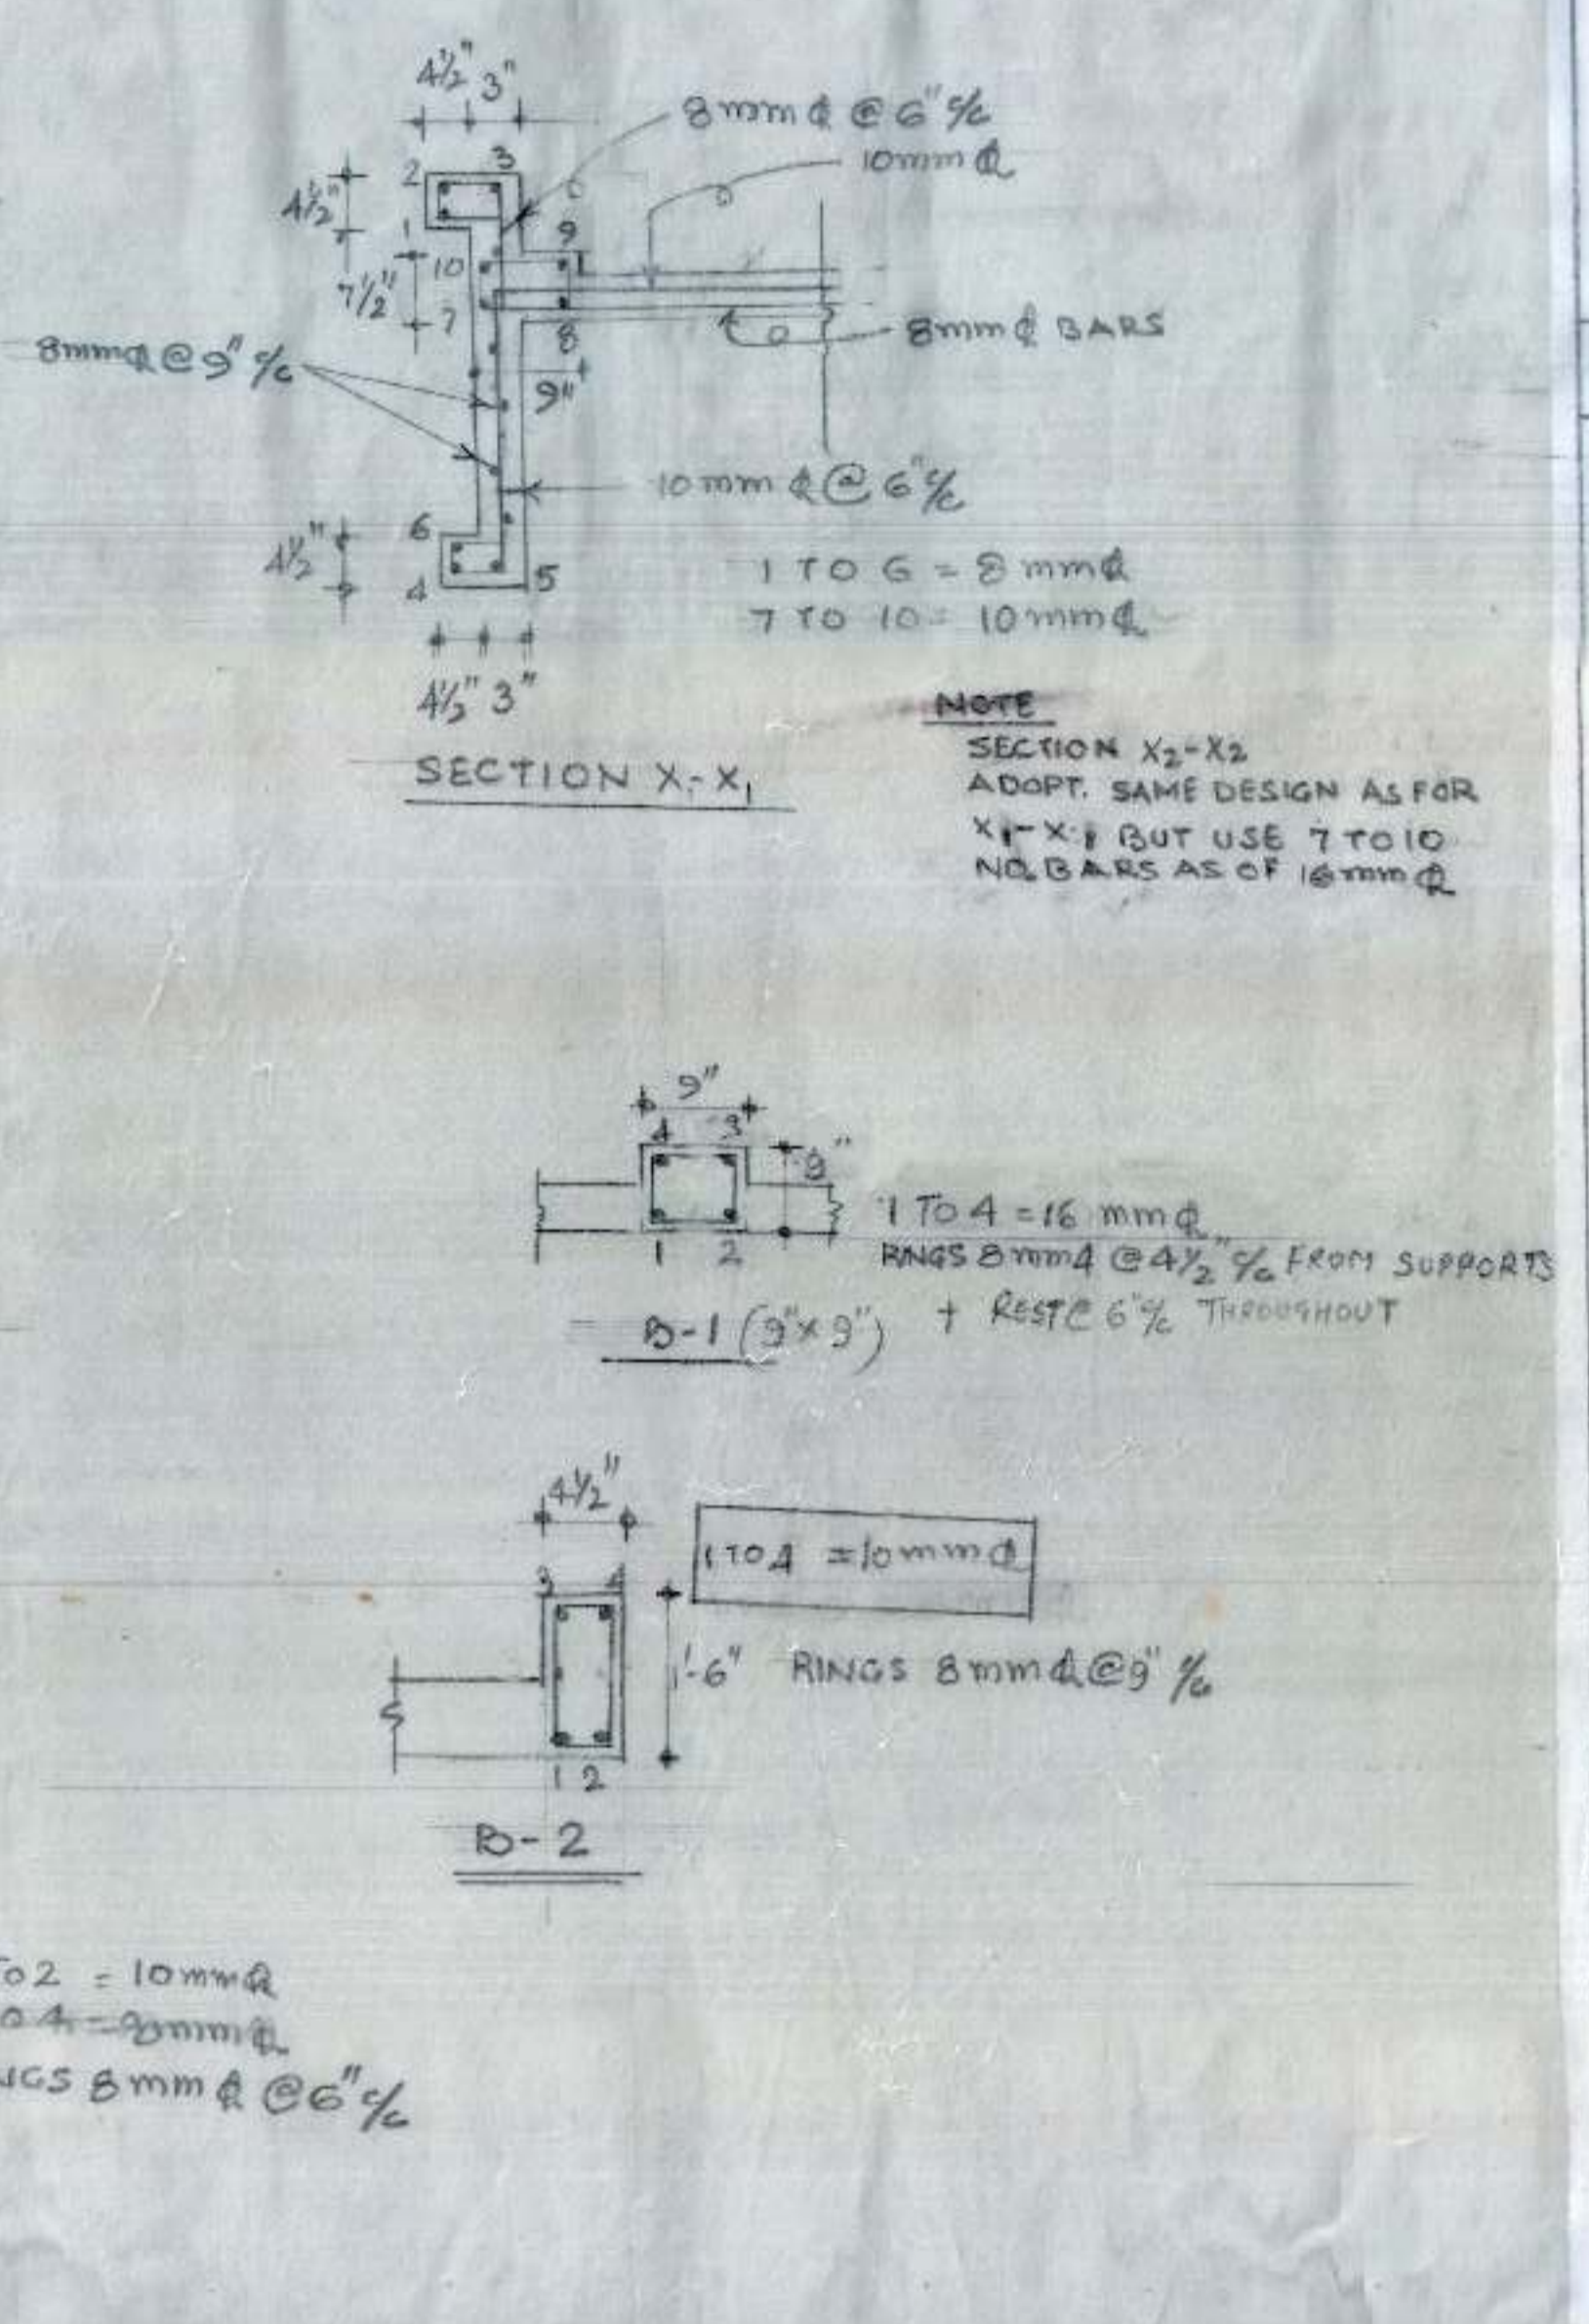 4½" 3"
8mmφ @ 6" c/c
10mmφ
2 3
4½"
1
9
10
7½"
7
8
8mmφ BARS
8mmφ @ 9" c/c
9"
10mmφ @ 6" c/c
6
4½"
4 5
1 TO 6 = 8mmφ
7 TO 10 = 10mmφ
4½" 3"
SECTION X1-X1
NOTE
SECTION X2-X2
ADOPT. SAME DESIGN AS FOR
X1-X1 BUT USE 7 TO 10
NO. BARS AS OF 16mmφ
9"
4 3
9"
1 TO 4 = 16 mmφ
1 2
RINGS 8mmφ @ 4½" c/c FROM SUPPORTS
B-1 (9"x9")
+ REST @ 6" c/c THROUGHOUT
4½"
1 TO 4 = 10mmφ
3 4
1'-6"
RINGS 8mmφ @ 9" c/c
1 2
B-2
TO 2 = 10mmφ
O 4 = 8mmφ
NGS 8mmφ @ 6" c/c